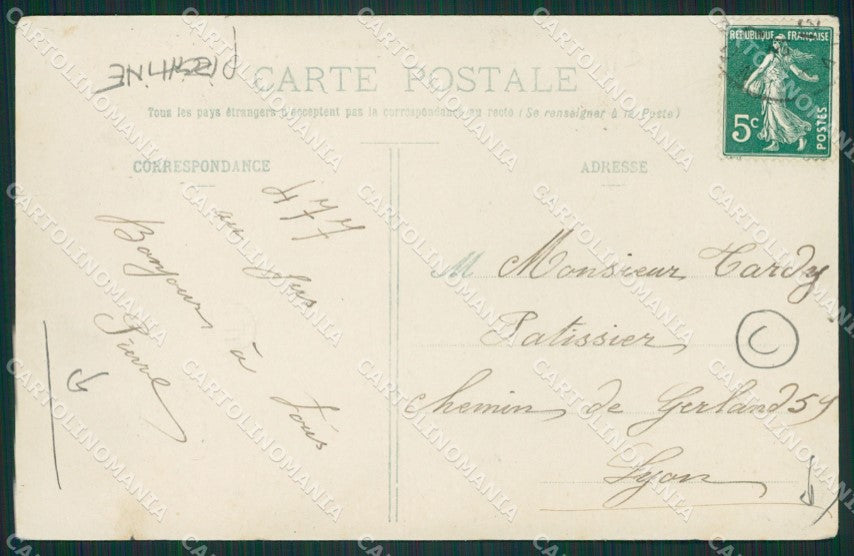 CARTE POSTALE
Tous les pays étrangers n'acceptent pas la correspondance au recto (Se renseigner à la Poste)
CORRESPONDANCE
ADRESSE
RÉPUBLIQUE FRANÇAISE
5c
POSTES
477
au jus
Bonjour à tous
Pierre
M Monsieur Tardy
Patissier
Chemin de Gerland 54
Lyon
C
CARTOLINOMANIA